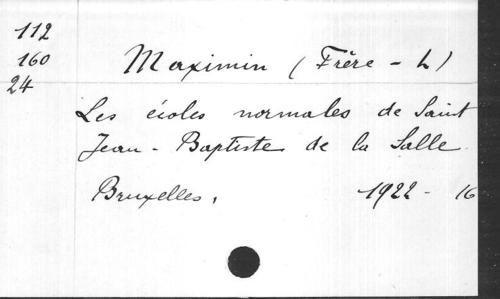 112
160
24
Maximin (Frère - L)
Les écoles normales de Saint
Jean-Baptiste de la Salle
Bruxelles, 1922 - 16